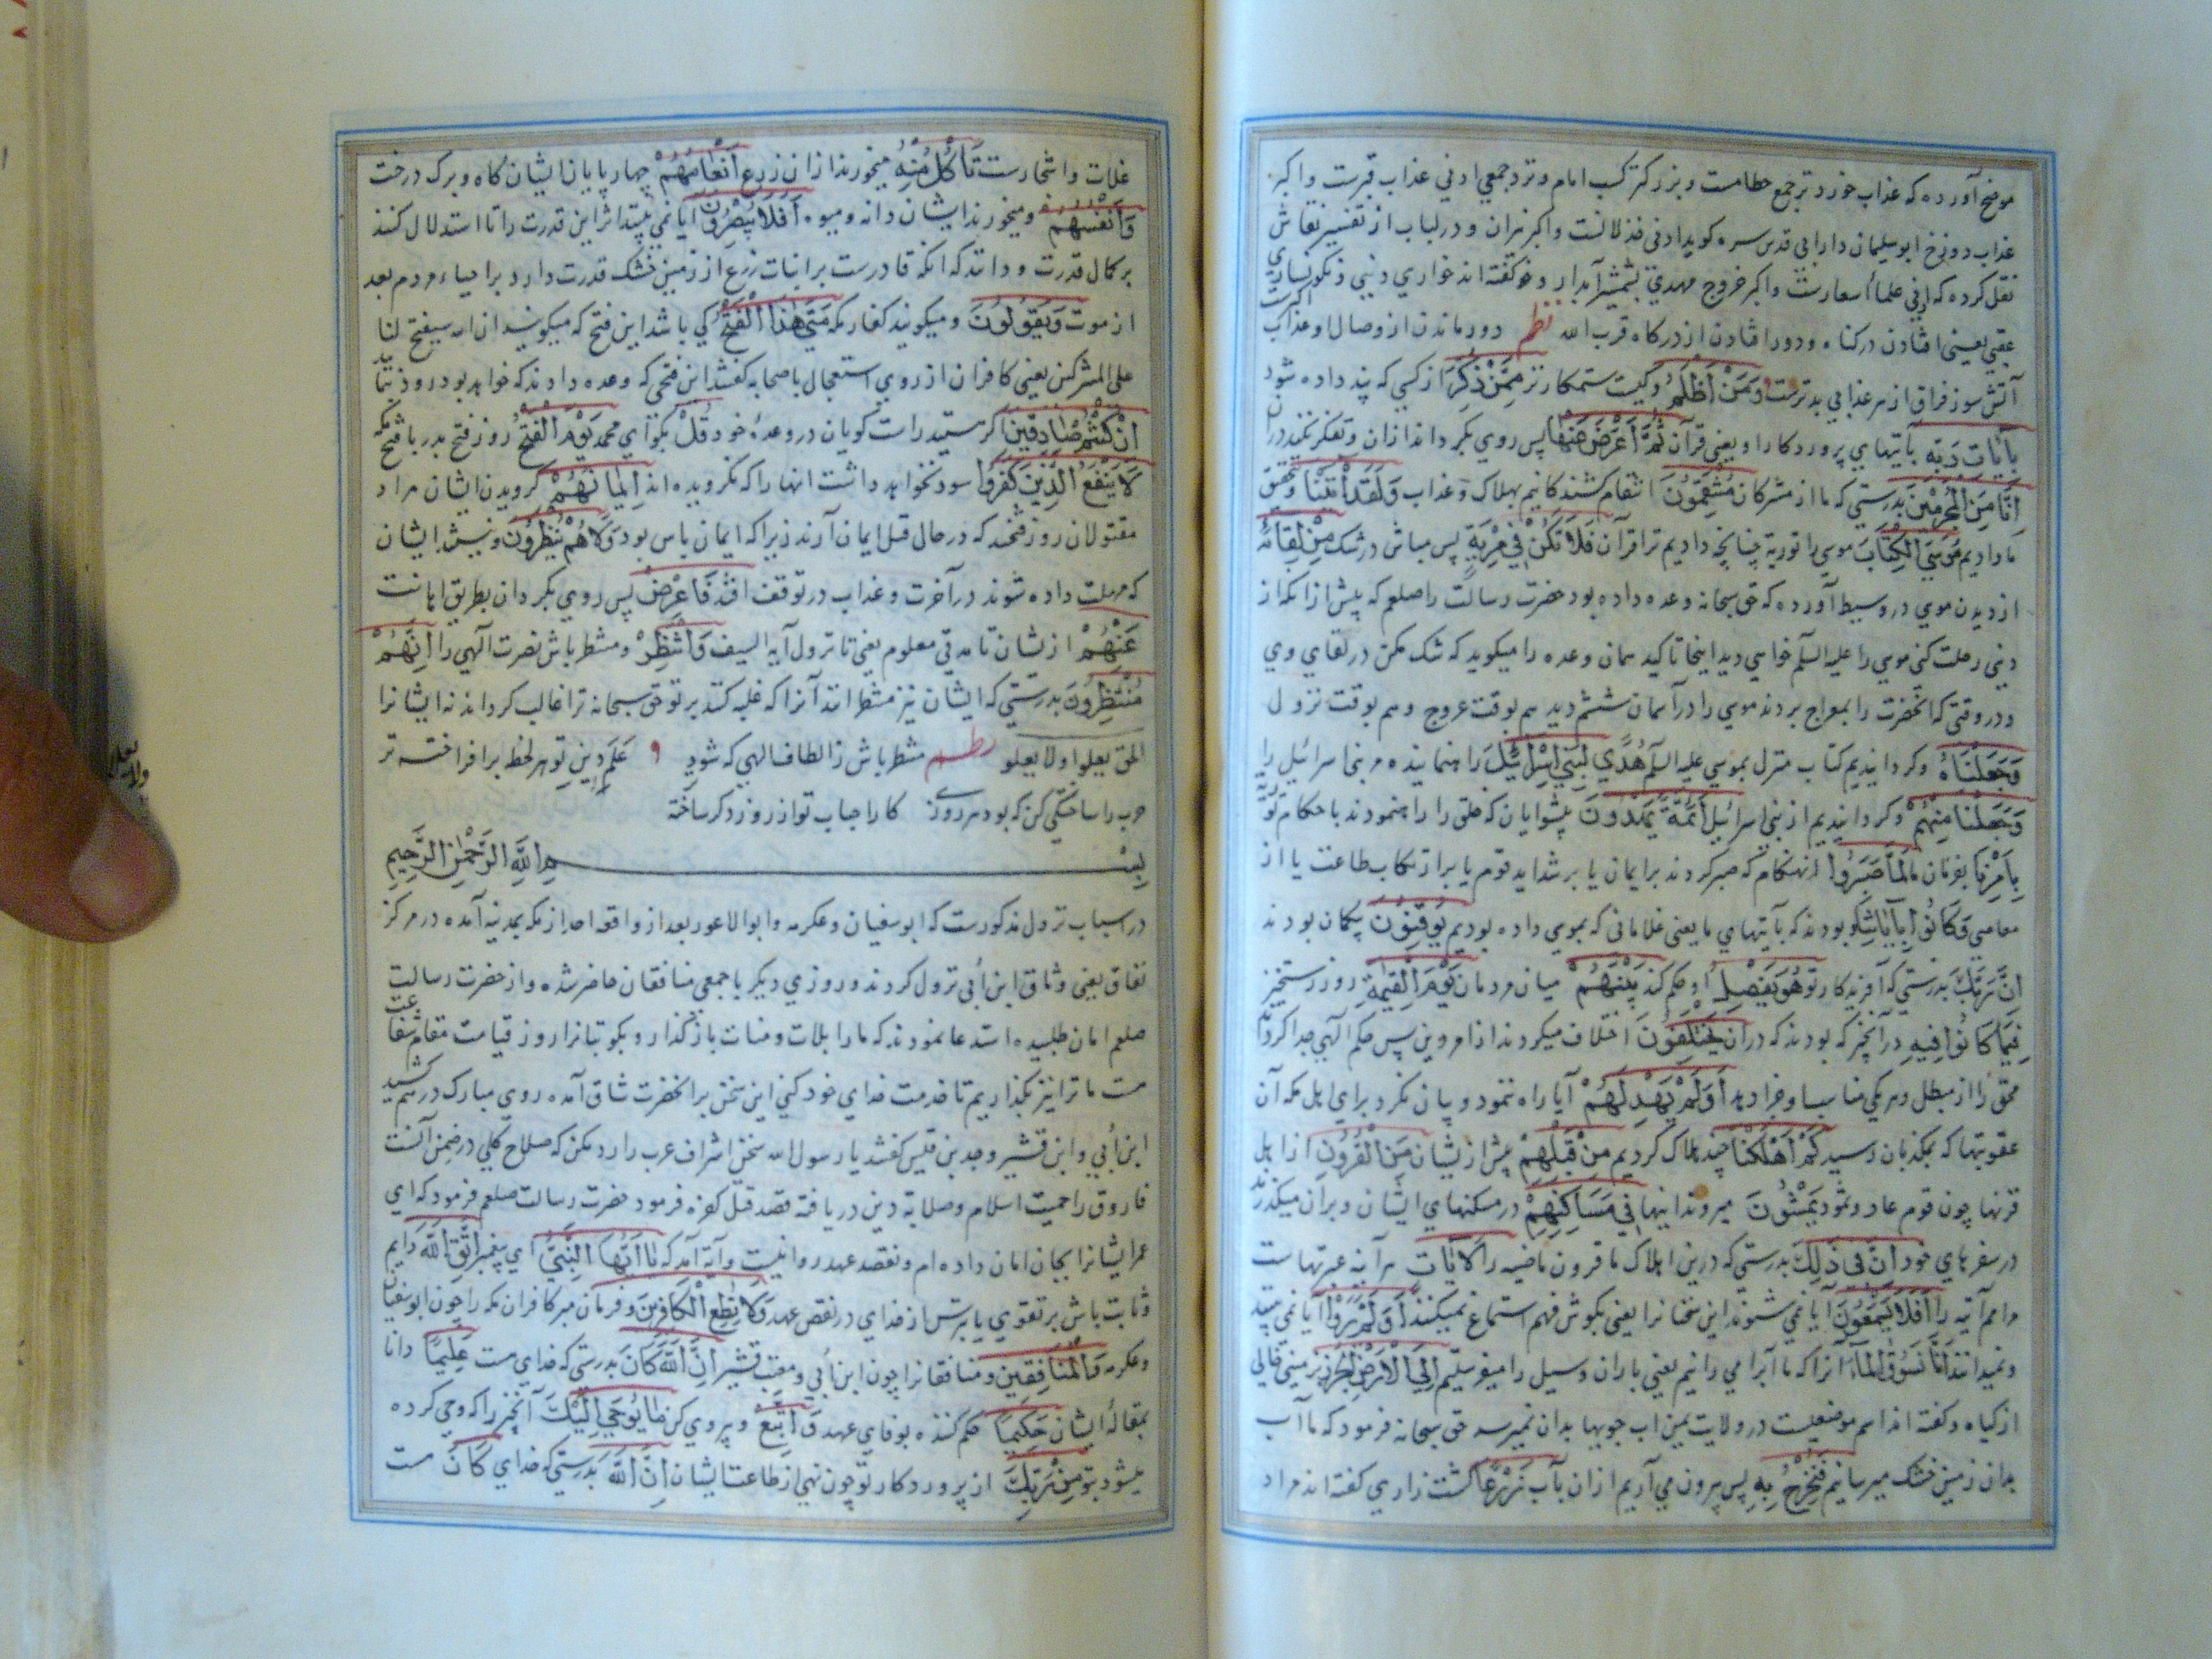 موضح آورده که عذاب خورد ترجمع حطامست و بزرکتر کسب امام و نزد جمعی ادنی عذاب قبرست و اکبر
عذاب دوزخ ابو سلیمان دارانی قدس سره کوید ادنی خذلانست و اکبر نیران و در لباب از تفسیر نقاش
نقل کرده که ادنی غلاء اسعارست و اکبر خروج مهدی بشمشیر آبدار و کفته اند خواری دنیی و نکونساری
عقبی یعنی افتادن در کناه و دور افتادن از درکاه قرب الله نظم دور ماندن از وصال او عذاب اکبرست
آتش سوز فراق از هر عذابی بدترست وَمَنْ أَظْلَمُ و کیست ستمکارتر مِمَّنْ ذُكِّرَ از کسی که پند داده شود
بِآيَاتِ رَبِّهِ بآیتهای پروردکار او یعنی قرآن ثُمَّ أَعْرَضَ عَنْهَا پس روی بکرداند ازان و تفکر نکند دران
إِنَّا مِنَ الْمُجْرِمِينَ بدرستی که ما از مشرکان مُنْتَقِمُونَ انتقام کشندکانیم بهلاک و عذاب وَلَقَدْ آتَيْنَا و بتحقیق
ما دادیم مُوسَى الْكِتَابَ موسی را توریة چنانچه دادیم ترا قرآن فَلَا تَكُنْ فِي مِرْيَةٍ پس مباش در شک مِنْ لِقَائِهِ
از دیدن موسی در وسیط آورده که حق سبحانه وعده داده بود حضرت رسالت را صلعم که پیش از انکه از
دنیی رحلت کنی موسی را علیه السلم خواهی دید اینجا تاکید همان وعده را میکوید که شک مکن در لقای وی
و در وقتی که انحضرت را بمعراج بردند موسی را در آسمان ششم دید هم بوقت عروج و هم بوقت نزول
وَجَعَلْنَاهُ و کردانیدیم کتاب منزل بموسی علیه السلم هُدًى لِبَنِي إِسْرَائِيلَ راه نماینده مر بنی اسرائیل را
وَجَعَلْنَا مِنْهُمْ و کردانیدیم از بنی اسرائیل أَئِمَّةً يَهْدُونَ پیشوایان که خلق را راه نمودند باحکام توریة
بِأَمْرِنَا بفرمان ما لَمَّا صَبَرُوا انهنکام که صبر کردند بر ایمان یا بر شداید قوم یا بر ارتکاب طاعت یا از
معاصی وَكَانُوا بِآيَاتِنَا و بودند که بآیتهای ما یعنی علاماتی که بموسی داده بودیم يُوقِنُونَ بیکمان بودند
إِنَّ رَبَّكَ بدرستی که آفریدکار تو هُوَ يَفْصِلُ او حکم کند بَيْنَهُمْ میان مردمان يَوْمَ الْقِيٰمَةِ روز رستخیز
فِيمَا كَانُوا فِيهِ در آنچیز که بودند که دران يَخْتَلِفُونَ اختلاف میکردند از امر دین پس حکم الهی جدا کرداند
محق را از مبطل و هر یکی مناسب او جزا دهد أَوَلَمْ يَهْدِ لَهُمْ آیا راه ننمود و بیان نکرد برای اهل مکه آن
عقوبتها که بمکذبان رسید كَمْ أَهْلَكْنَا چند هلاک کردیم مِنْ قَبْلِهِمْ پیش از یشان مِنَ الْقُرُونِ از اهل
قرنها چون قوم عاد و ثمود يَمْشُونَ میروند اینها فِي مَسَاكِنِهِمْ در مسکنهای ایشان و بران میکذرند
در سفرهای خود إِنَّ فِي ذَلِكَ بدرستی که درین اهلاک ما قرون ماضیه را لَآيَاتٍ هر آینه عبرتهاست
مر امم آتیه را أَفَلَا يَسْمَعُونَ آیا نمی شنوند این سخنانرا یعنی بکوش فهم استماع نمیکنند أَوَلَمْ يَرَوْا آیا نمی بینند
و نمیدانند أَنَّا نَسُوقُ الْمَاءَ آنرا که ما آبرا می رانیم یعنی باران و سیل را میفرستیم إِلَى الْأَرْضِ الْجُرُزِ بر زمینی خالی
از کیاه و کفته اند اسم موضعیست در ولایت یمن اب جویها بدان نمیرسد حق سبحانه فرمود که ما آب
بدان زمین خشک میرسانیم فَنُخْرِجُ بِهِ پس بیرون می آریم ازان بآب زَرْعًا کشت زاری کفته اند مراد
غلات و اشجارست تَأْكُلُ مِنْهُ میخورند ازان زرع أَنْعَامُهُمْ چهارپایان ایشان کاه و برک درخت
وَأَنْفُسُهُمْ و میخورند ایشان دانه و میوه أَفَلَا يُبْصِرُونَ آیا نمی بینند اثر این قدرت را تا استدلال کنند
بر کمال قدرت و دانند که انکه قادرست بر انبات زرع از زمین خشک قدرت دارد بر احیاء مردم بعد
از موت وَيَقُولُونَ و میکویند کفار مکه مَتَى هَذَا الْفَتْحُ کی باشد این فتح که میکویند ان الله سیفتح لنا
علی المشرکین یعنی کافران از روی استعجال باصحابه کفتند این فتحی که وعده دادند که خواهد بود در روز بنما
إِنْ كُنْتُمْ صَادِقِينَ اکر هستید راست کویان در وعدهٔ خود قُلْ بکو ای محمد يَوْمَ الْفَتْحِ روز فتح بدر یا فتح مکه
لَا يَنْفَعُ الَّذِينَ كَفَرُوا سود نخواهد داشت انها را که نکرویده اند إِيمَانُهُمْ کرویدن ایشان مراد
مقتولان روز فتحند که در حال قتل ایمان آرند زیرا که ایمان یاس بود وَلَا هُمْ يُنْظَرُونَ و نیستند ایشان
که مهلت داده شوند در آخرت و عذاب در توقف افتد فَأَعْرِضْ پس روی بکردان بطریق اهانت
عَنْهُمْ از یشان تا مدتی معلوم یعنی تا نزول آیه السیف وَانْتَظِرْ و منتظر باش نصرت الهی را إِنَّهُمْ
مُنْتَظِرُونَ بدرستی که ایشان نیز منتظراند آنرا که غلبه کنند بر تو حق سبحانه ترا غالب کرداند نه ایشانرا
الحق یعلوا ولا یعلو نظم منتظر باش ز الطاف الهی که شود علم دین تو هر لحظه برافراخته تر
حرب را ساختکی کن که بود هر روزی کار احباب تو از روز دکر ساخته
بِسْمِ اللَّهِ الرَّحْمٰنِ الرَّحِيمِ
در اسباب نزول مذکورست که ابو سفیان و عکرمه و ابوالاعور بعد از واقعه احد از مکه بمدینه آمده در مرکز
نفاق یعنی وثاق ابن أبی نزول کردند و روزی دیکر با جمعی منافقان حاضر شده و از حضرت رسالت
صلعم امان طلبیده استدعا نمودند که ما را بلات و منات بازکذار و بکو بتانرا روز قیامت مقام شفاعت
هست ما ترا نیز بکذاریم تا خدمت خدای خود کنی این سخن بر انحضرت شاق آمده روی مبارک درهم کشید
ابن أبی و ابن قشیر و جد بن قیس کفتند یا رسول الله سخن اشراف عرب را رد مکن که صلاح کلی در ضمن آنست
فاروق را حمیت اسلام و صلابة دین دریافته قصد قتل کفره فرمود حضرت رسالت صلعم فرمود که ای
عمر ایشانرا بجان امان داده ام و نقض عهد روا نیست و آیة آمد که يَا أَيُّهَا النَّبِيُّ ای پیغمبر اتَّقِ اللَّهَ دایم
و ثابت باش بر تقوی یا بترس از خدای در نقض عهد وَلَا تُطِعِ الْكَافِرِينَ و فرمان مبر کافران مکه را چون ابوسفیان
و عکرمه وَالْمُنَافِقِينَ و منافقانرا چون ابن أبی و معتب قشیر إِنَّ اللَّهَ كَانَ بدرستی که خدای هست عَلِيمًا دانا
بمقالهٔ ایشان حَكِيمًا حکم کننده بوفای عهد وَاتَّبِعْ و پیروی کن مَا يُوحَى إِلَيْكَ آنچیز را که وحی کرده
میشود بتو مِنْ رَبِّكَ از پروردکار تو چون نهی از طاعت ایشان إِنَّ اللَّهَ بدرستی که خدای كَانَ هست